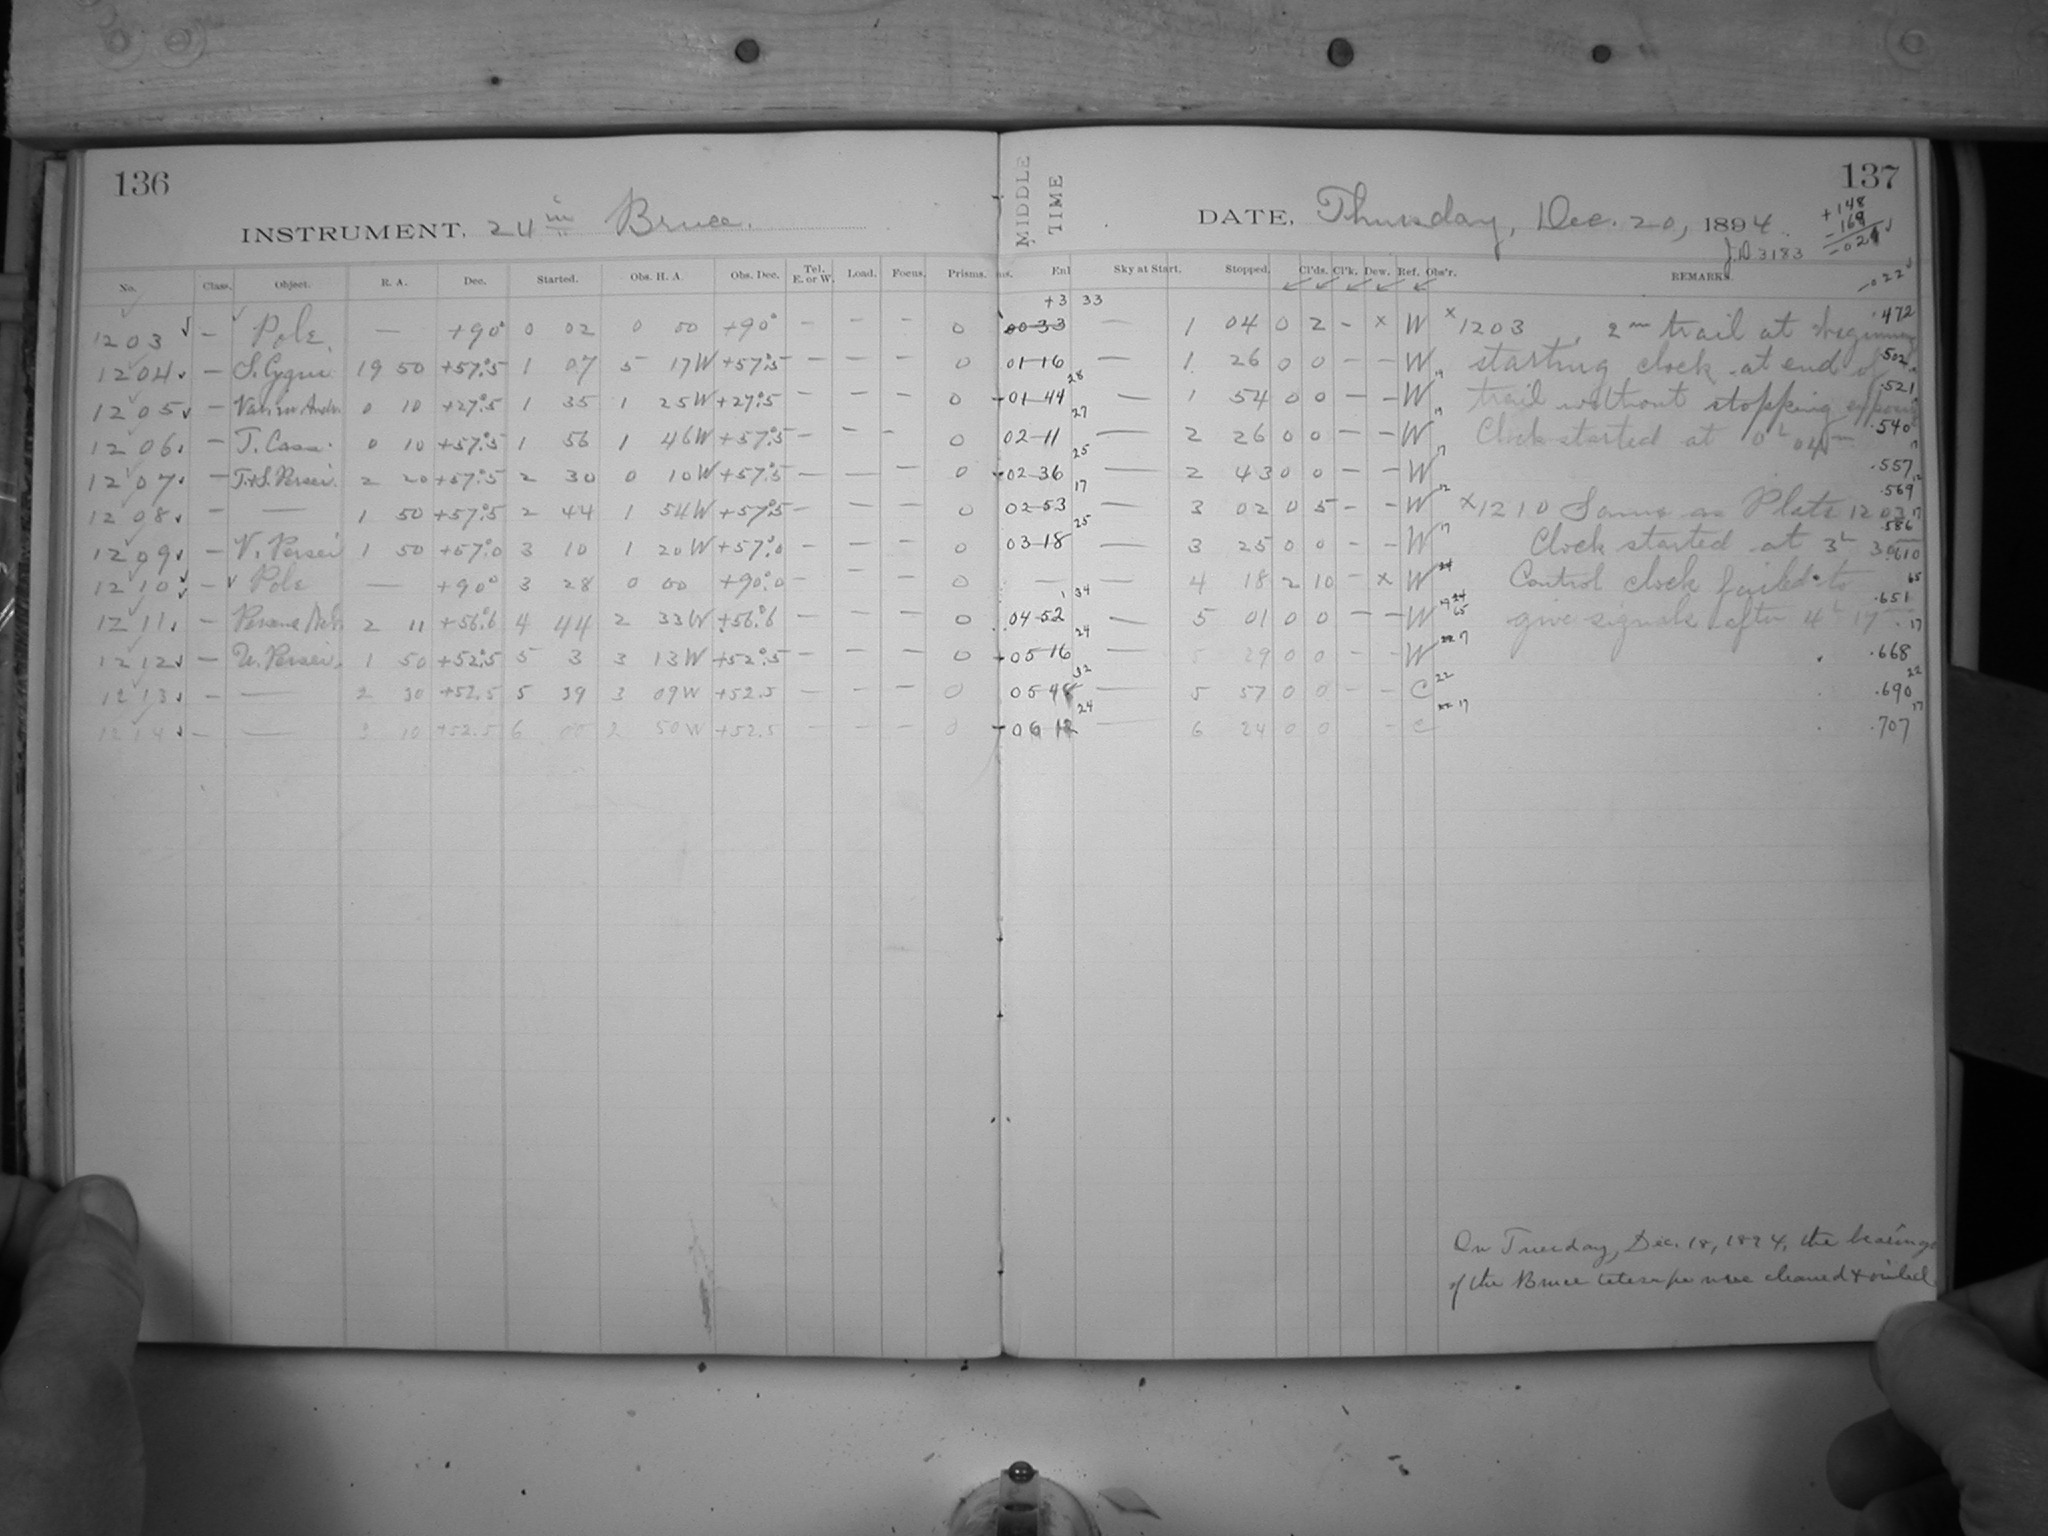 136
INSTRUMENT, 24 in Bruce.
No. Class. Object. R. A. Dec. Started. Obs. H. A. Obs. Dec. Tel. E. or W. Load. Focus. Prisms.
1203 — Pole — +90° 0 02 0 00 +90° — — — 0
1204 — S. Cygni 19 50 +57.°5 1 07 5 17W +57.°5 — — — 0
1205 — 0 10 +27.°5 1 35 1 25W +27.°5 — — — 0
1206 — T. Cass. 0 10 +57.°5 1 56 1 46W +57.°5 — — — 0
1207 — T.+S. Persei. 2 20 +57.°5 2 30 0 10W +57.°5 — — — 0
1208 — — 1 50 +57.°5 2 44 1 54W +57.°5 — — — 0
1209 — V. Persei 1 50 +57.°0 3 10 1 20W +57.°0 — — — 0
1210 — Pole — +90° 3 28 0 00 +90.°0 — — — 0
1211 — 2 11 +56.°6 4 44 2 33W +56.°6 — — — 0
1212 — U. Persei. 1 50 +52.°5 5 3 3 13W +52.°5 — — — 0
1213 — — 2 30 +52.5 5 39 3 09W +52.5 — — — 0
1214 — — 3 10 +52.5 6 00 2 50W +52.5 — — — 0
137
MIDDLE TIME
DATE, Thursday, Dec. 20, 1894.
+148
-168
J.D. 3183
-022
Enl Sky at Start. Stopped. Cl'ds. Cl'k. Dew. Ref. Obs'r. REMARKS.
+3 33
00 33 — 1 04 0 2 - x W x 1203, 2m trail at beginning .472
01-16 — 1 26 0 0 — — W starting clock at end of .502
28
01-44 — 1 54 0 0 — — W trail without stopping .521
27
02-11 — 2 26 0 0 — — W Clock started at 0h 04m .540
25
02-36 — 2 43 0 0 — — W .557
17
02-53 — 3 02 0 5 - - W x 1210 Same as Plate 1203 .569
25
03-18 — 3 25 0 0 — — W Clock started at 3h .586
— — 4 18 2 10 - x W Control clock failed to .610
34
04-52 — 5 01 0 0 — — W give signals after 4h 17m .651
24
05-16 — 5 29 0 0 — — W .668
32
05-48 — 5 57 0 0 - - C .690
24
06 12 — 6 24 0 0 - C .707
On Tuesday, Dec. 18, 1894, the bearings
of the Bruce telescope were cleaned & oiled.